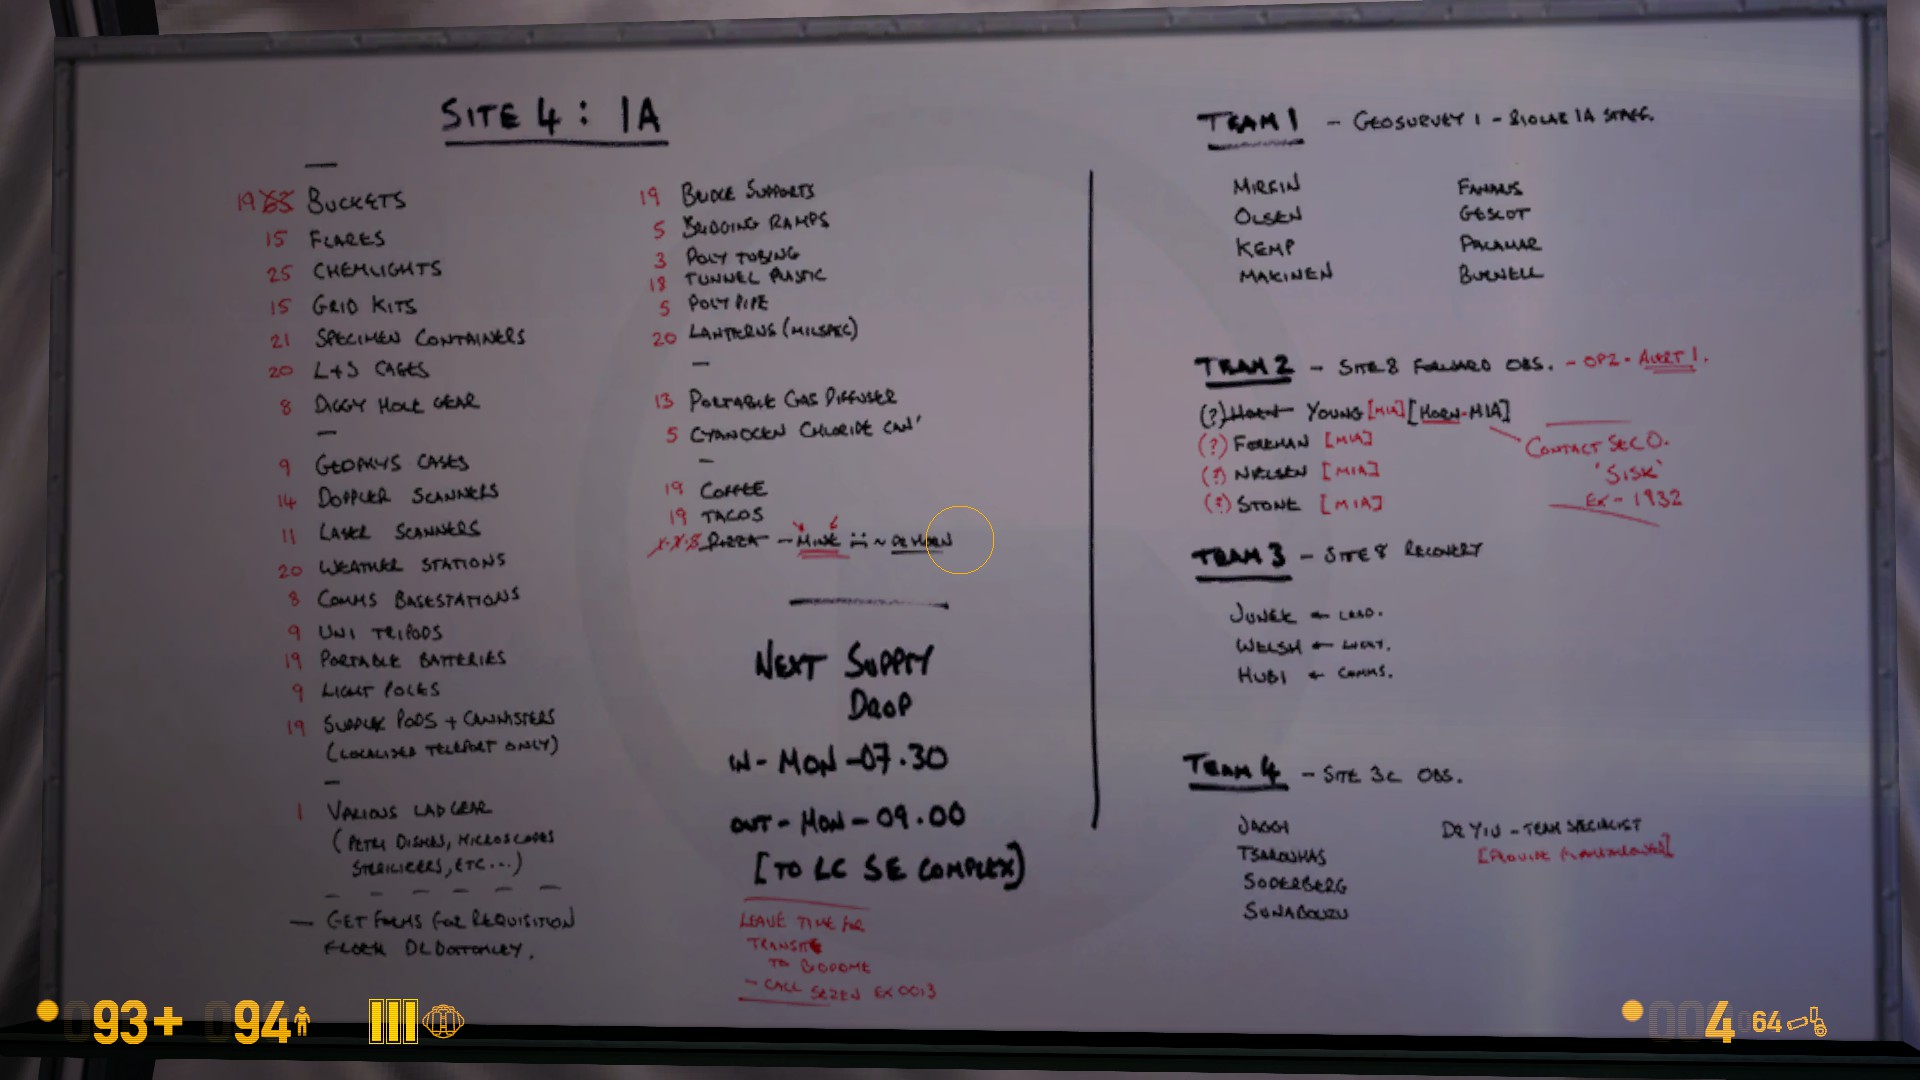 SITE 4 : 1A
—
19 65 BUCKETS
15 FLARES
25 CHEMLIGHTS
15 GRID KITS
21 SPECIMEN CONTAINERS
20 L+S CAGES
8 DIGGY HOLE GEAR
—
9 GEOPHYS CASES
14 DOPPLER SCANNERS
11 LASER SCANNERS
20 WEATHER STATIONS
8 COMMS BASESTATIONS
9 UNI TRIPODS
19 PORTABLE BATTERIES
9 LIGHT POLES
19 SUPPLY PODS + CANNISTERS
(LOCALISED TELEPORT ONLY)
—
1 VARIOUS LAB GEAR
(PETRI DISHES, MICROSCOPES
STERILISERS, ETC...)
— GET FORMS FOR REQUISITION
FROM DR BOTTOMLEY.
19 BRIDGE SUPPORTS
5 BRIDGING RAMPS
3 POLY TUBING
18 TUNNEL PLASTIC
5 POLY PIPE
20 LANTERNS (MILSPEC)
—
13 PORTABLE GAS DIFFUSER
5 CYANOGEN CHLORIDE CAN'
—
19 COFFEE
19 TACOS
PIZZA - MINE ~ DR HORN
NEXT SUPPLY
DROP
IN - MON - 07.30
OUT - MON - 09.00
[TO LC SE COMPLEX]
LEAVE TIME FOR
TRANSIT
TO BIODOME
- CALL SEZEN EX 0013
TEAM 1 - GEOSURVEY 1 - BIOLAB 1A STAFF.
MIRFIN FANAUS
OLSEN GESLOT
KEMP PALAMAR
MAKINEN BURNELL
TEAM 2 - SITE 8 FORWARD OBS. - OP2 - ALERT 1.
(?) HORN YOUNG [MIA] [HORN-MIA]
(?) FOREMAN [MIA]
(?) NIELSEN [MIA]
(?) STONE [MIA]
CONTACT SEC O.
'SISK'
EX - 1932
TEAM 3 - SITE 8 RECOVERY
JUNEK ← LEAD.
WELSH ←
HUBI ← COMMS.
TEAM 4 - SITE 3C OBS.
JAGGI
TSAROUHAS
SODERBERG
SUNABOUZU
DR YIU - TEAM SPECIALIST
093+ 094
004 064